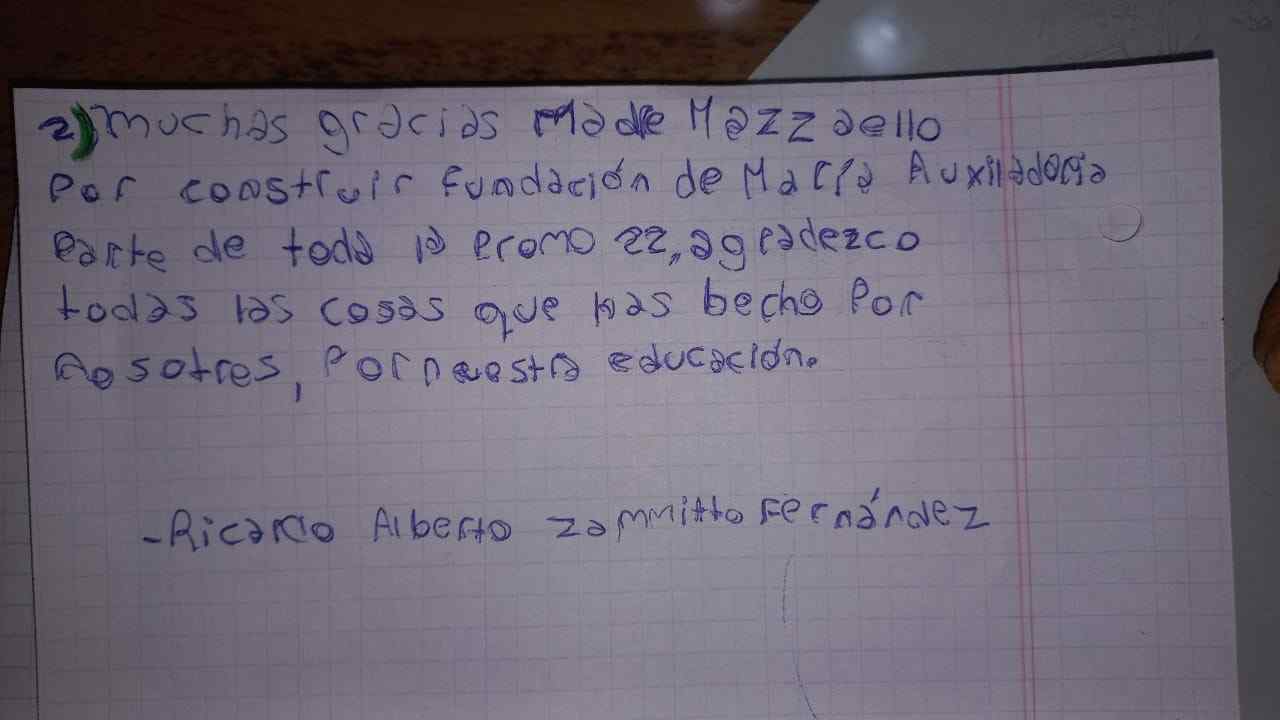 2) Muchas gracias Madre Mazzaello
Por construir fundación de María Auxiliadoria
Parte de toda la Promo 22, agradezco
todas las cosas que has becho Por
nosotres, Por nuestra educación.
-Ricardo Alberto Zammitto Fernández